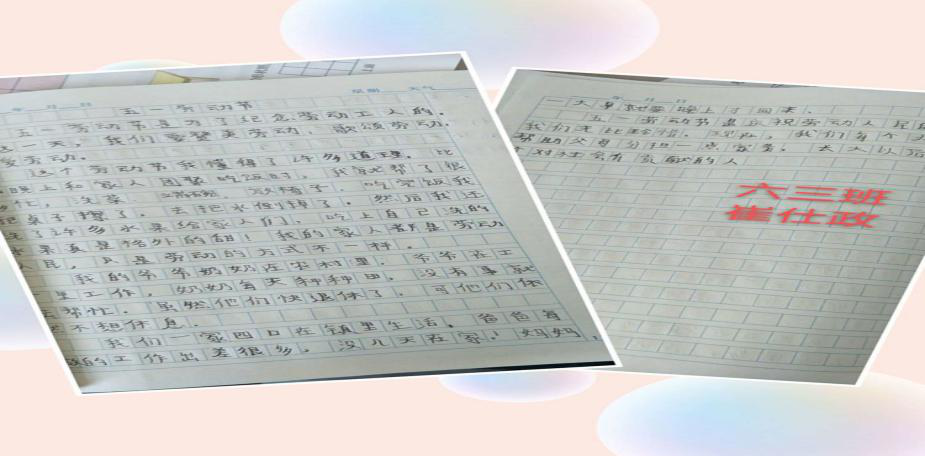 五一劳动节
五一劳动节是为了纪念劳动工人的。
这一天，我们要赞美劳动，歌颂劳动，
爱劳动。
这个劳动节我懂得了许多道理。比
晚上和家人团聚吃饭时，我就帮了很
多忙，洗菜 放椅子，吃完饭我
把桌子擦了，去把水倒掉了。然后我还
洗了许多水果给家人们，吃上自己洗的
水果真是格外的甜！我的家人都是劳动
人民，只是劳动的方式不一样。
我的爷爷奶奶在农村里，爷爷在工
里工作，奶奶每天种种田，没有事就
去帮忙。虽然他们快退休了，可他们依
不想休息。
我们一家四口在镇里生活，爸爸有
的工作出差很多，没几天在家，妈妈
年 月 日
星期 天气
年 月 日
一大早就要晚上才回来。
五一劳动节是庆祝劳动人民的
我们无比珍惜。现在，我们每个人
帮助父母分担一点家务，长大以后
对社会有贡献的人
六三班
崔仕政